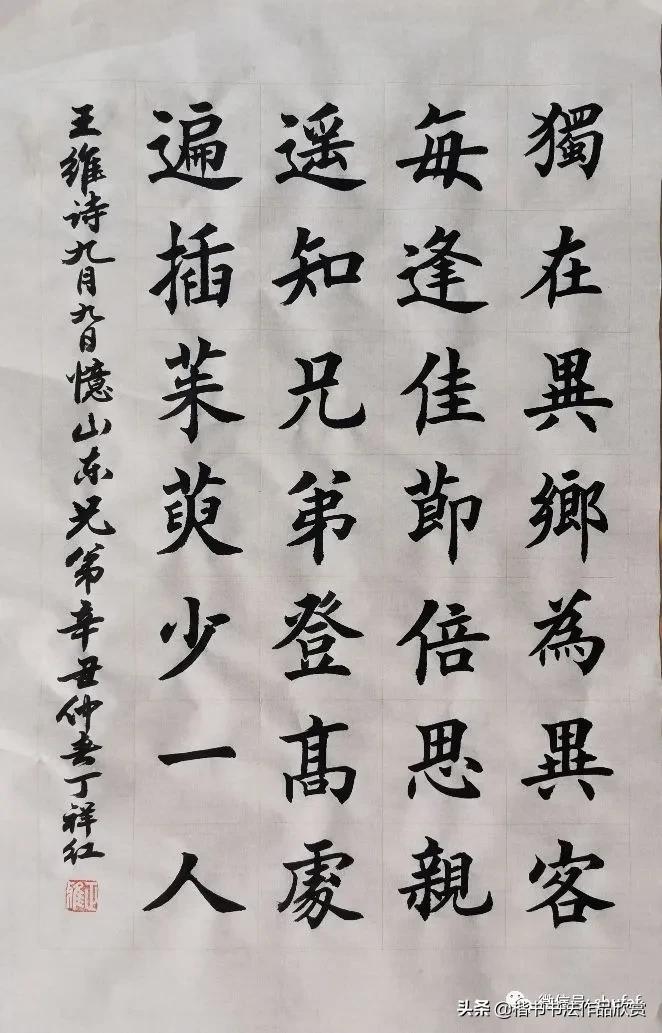 獨在異鄉為異客
每逢佳節倍思親
遥知兄弟登高處
遍插茱萸少一人
王維诗九月九日憶山东兄弟辛丑仲春丁祥红
头条 @楷书书法作品欣赏
微信号